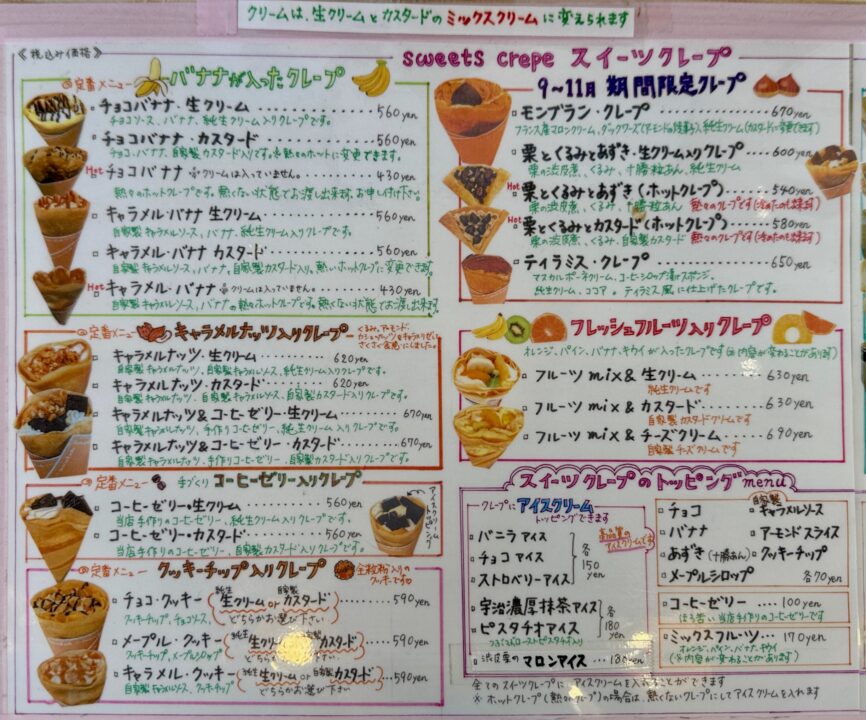 クリームは、生クリームとカスタードのミックスクリームに変えられます
《税込み価格》
sweets crepe スイーツクレープ
定番メニュー バナナが入ったクレープ
チョコバナナ・生クリーム 560yen
チョコソース、バナナ、純生クリーム入りクレープです。
チョコバナナ・カスタード 560yen
チョコ、バナナ、自家製カスタード入りです。※熱々のホットに変更できます。
Hot チョコバナナ ※クリームは入っていません。 430yen
熱々のホットクレープです。熱くない状態でお渡し出来ます。お申し付け下さい。
キャラメル・バナナ 生クリーム 560yen
自家製キャラメルソース、バナナ、純生クリーム入りクレープです。
キャラメル・バナナ カスタード 560yen
自家製キャラメルソース、バナナ、自家製カスタード入り。熱いホットクレープに変更できます。
Hot キャラメル・バナナ ※クリームは入っていません。 430yen
自家製キャラメルソース、バナナの熱々ホットクレープです。熱くない状態でお渡し出来ます。
定番メニュー キャラメルナッツ入りクレープ
くるみ、アーモンド、
キャラメルナッツ・生クリーム 620yen
自家製キャラメルナッツ、自家製キャラメルソース、純生クリーム入りクレープです。
キャラメルナッツ・カスタード 620yen
自家製キャラメルナッツ、自家製キャラメルソース、自家製カスタード入りクレープです。
キャラメルナッツ&コーヒーゼリー・生クリーム 670yen
自家製キャラメルナッツ、手作りコーヒーゼリー、純生クリーム入りクレープです。
キャラメルナッツ&コーヒーゼリー・カスタード 670yen
自家製キャラメルナッツ、手作りコーヒーゼリー、自家製カスタード入りクレープです。
定番メニュー 手づくりコーヒーゼリー入りクレープ
コーヒーゼリー・生クリーム 560yen
当店手作りのコーヒーゼリー、純生クリーム入りクレープです。
コーヒーゼリー・カスタード 560yen
当店手作りのコーヒーゼリー、自家製カスタード入りクレープです。
アイスクリームトッピング
定番メニュー クッキーチップ入りクレープ
全粒粉入りのクッキーです
チョコ・クッキー 純生生クリーム or 自家製カスタード 590yen
クッキーチップ、チョコソース、 どちらかお選び下さい
メープル・クッキー 純生生クリーム or 自家製カスタード 590yen
クッキーチップ、メープルシロップ どちらかお選び下さい
キャラメル・クッキー 純生生クリーム or 自家製カスタード 590yen
自家製キャラメルソース、クッキーチップ どちらかお選び下さい
9〜11月 期間限定クレープ
モンブラン・クレープ 670yen
フランス産マロンクリーム、ダックワーズ(アーモンドの焼菓子)、純生クリーム(カスタードに変更できます)
栗とくるみとあずき・生クリーム入りクレープ 600yen
栗の渋皮煮、くるみ、十勝粒あん、純生クリーム
Hot 栗とくるみとあずき(ホットクレープ) 540yen
栗の渋皮煮、くるみ、十勝粒あん 熱々のクレープです(冷たいのも出来ます)
Hot 栗とくるみとカスタード(ホットクレープ) 580yen
栗の渋皮煮、くるみ、自家製カスタード 熱々のクレープです(冷たいのも出来ます)
ティラミス・クレープ 650yen
マスカルポーネクリーム、コーヒーシロップ漬けスポンジ、
純生クリーム、ココア。ティラミス風に仕上げたクレープです。
フレッシュフルーツ入りクレープ
オレンジ、パイン、バナナ、キウイが入ったクレープです(※内容が変わることがあります)
フルーツmix&生クリーム 630yen
純生クリームです
フルーツmix&カスタード 630yen
自家製カスタードクリームです
フルーツmix&チーズクリーム 690yen
自家製チーズクリームです
スイーツクレープのトッピングmenu
クレープにアイスクリーム
トッピングできます
高品質のアイスクリームです
バニラアイス
チョコアイス 各150yen
ストロベリーアイス
宇治濃厚抹茶アイス 各180yen
ピスタチオアイス
渋皮栗のマロンアイス 180yen
チョコ
自家製キャラメルソース
バナナ
アーモンドスライス
あずき(十勝あん)
クッキーチップ
メープルシロップ 各70yen
コーヒーゼリー 100yen
ほろ苦い当店手作りのコーヒーゼリーです
ミックスフルーツ 170yen
オレンジ、パイン、バナナ、キウイ
(※内容が変わることがあります)
全てのスイーツクレープにアイスクリームを入れることができます
※ホットクレープ(熱々のクレープ)の場合は、熱くないクレープにしてアイスクリームを入れます